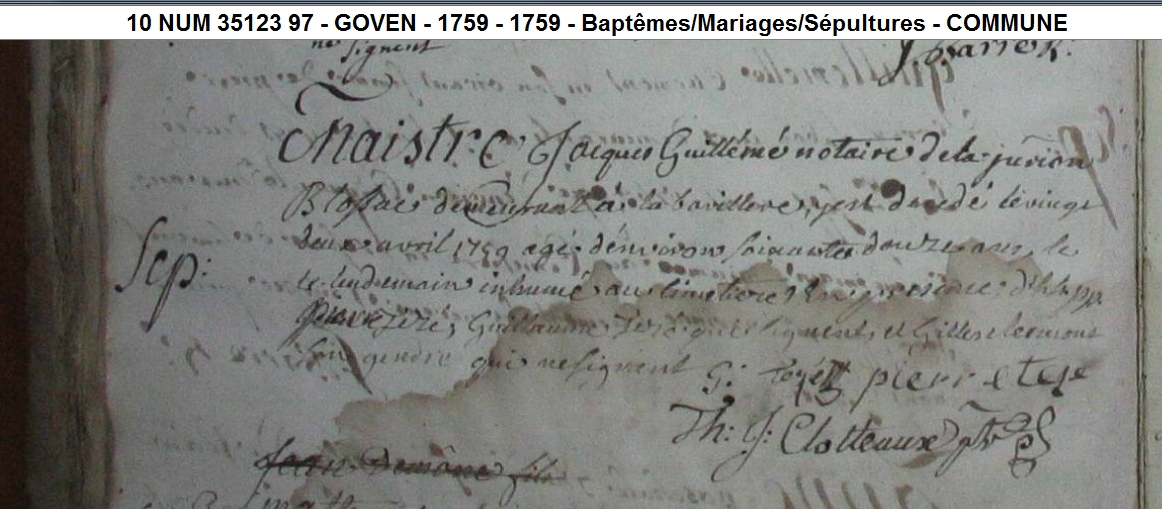 10 NUM 35123 97 - GOVEN - 1759 - 1759 - Baptêmes/Mariages/Sépultures - COMMUNE
ne signent
Maistre Jacques Guillémé notaire de la jurion
Blossac demeurant à la y est decedé le vingt
deux avril 1759 agé d'environ soixante douze ans, le
Sep:
lendemain inhumé au cimetiere en presence
Guillaume qui signent, et Gilles
son gendre qui ne signent
G: pierre teze
Th: J: Clotteaux
Jean fils